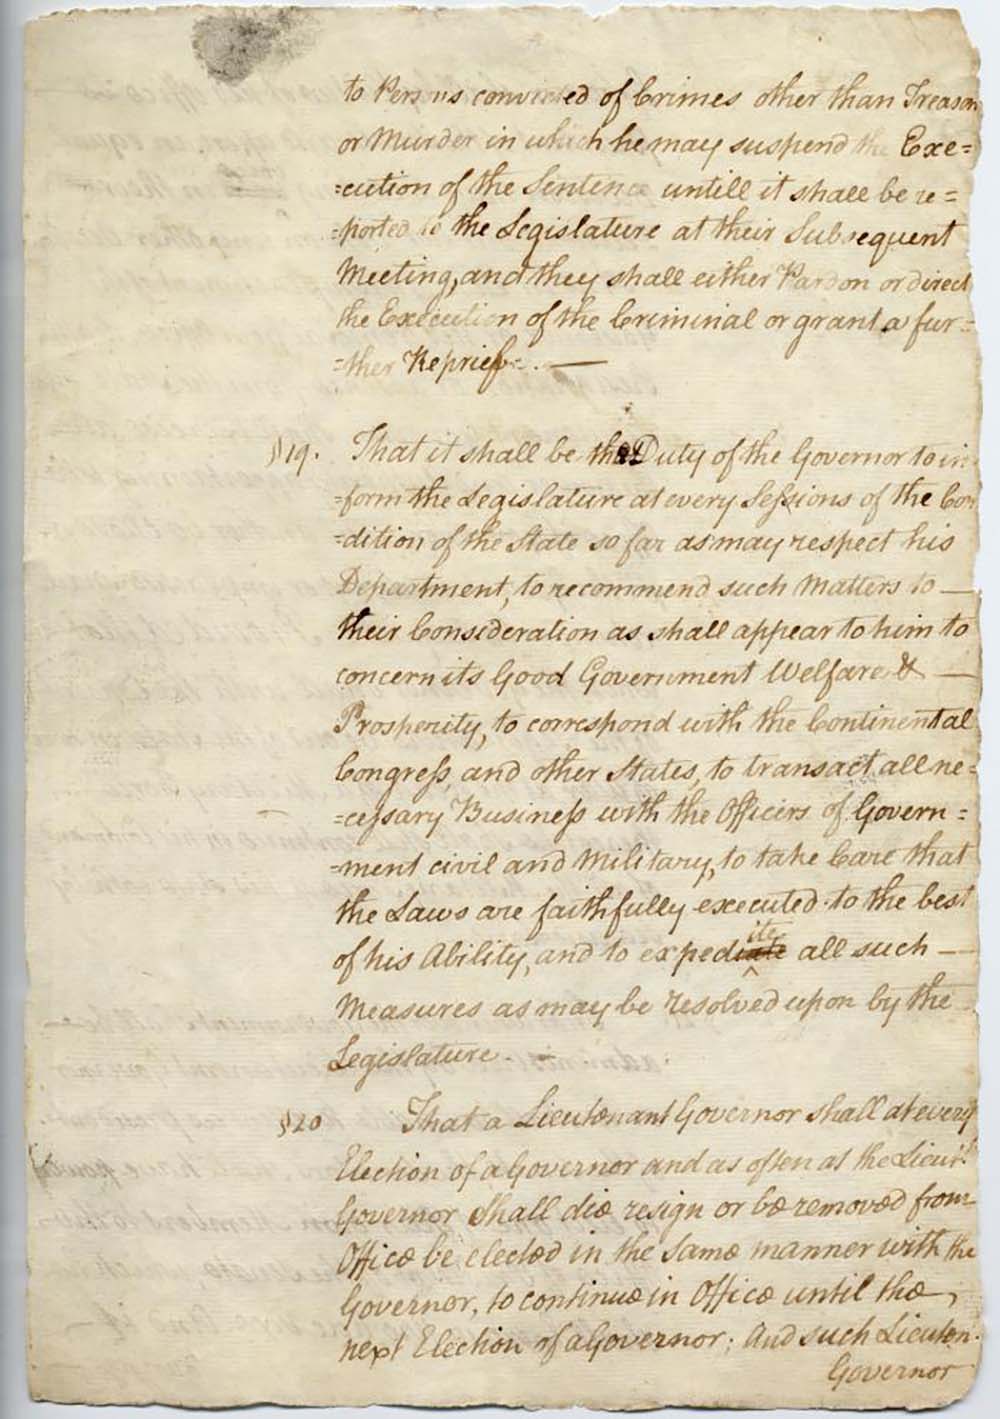 to Persons convicted of Crimes other than Treason
or Murder in which he may suspend the Exe=
=cution of the Sentence untill it shall be re=
=ported to the Legislature at their Subsequent
Meeting, and they shall either Pardon or direct
the Execution of the Criminal or grant a fur=
=ther Reprieve. —
§19. That it shall be the Duty of the Governor to in
=form the Legislature at every Sessions of the Con
=dition of the State so far as may respect his
Department, to recommend such Matters to —
their Consideration as shall appear to him to
concern its Good Government Welfare & —
Prosperity, to correspond with the Continental
Congress, and other States, to transact all ne=
=cessary Business with the Officers of Govern=
=ment civil and Military, to take Care that
the Laws are faithfully executed to the best
ite
of his Ability, and to expediate all such —
Measures as may be resolved upon by the
Legislature. —
§20 That a Lieutenant Governor shall at every
Election of a Governor and as often as the Lieut.
Governor shall die resign or be removed from
Office be elected in the same manner with the
Governor, to continue in Office until the
next Election of a Governor; And such Lieuten.
Governor